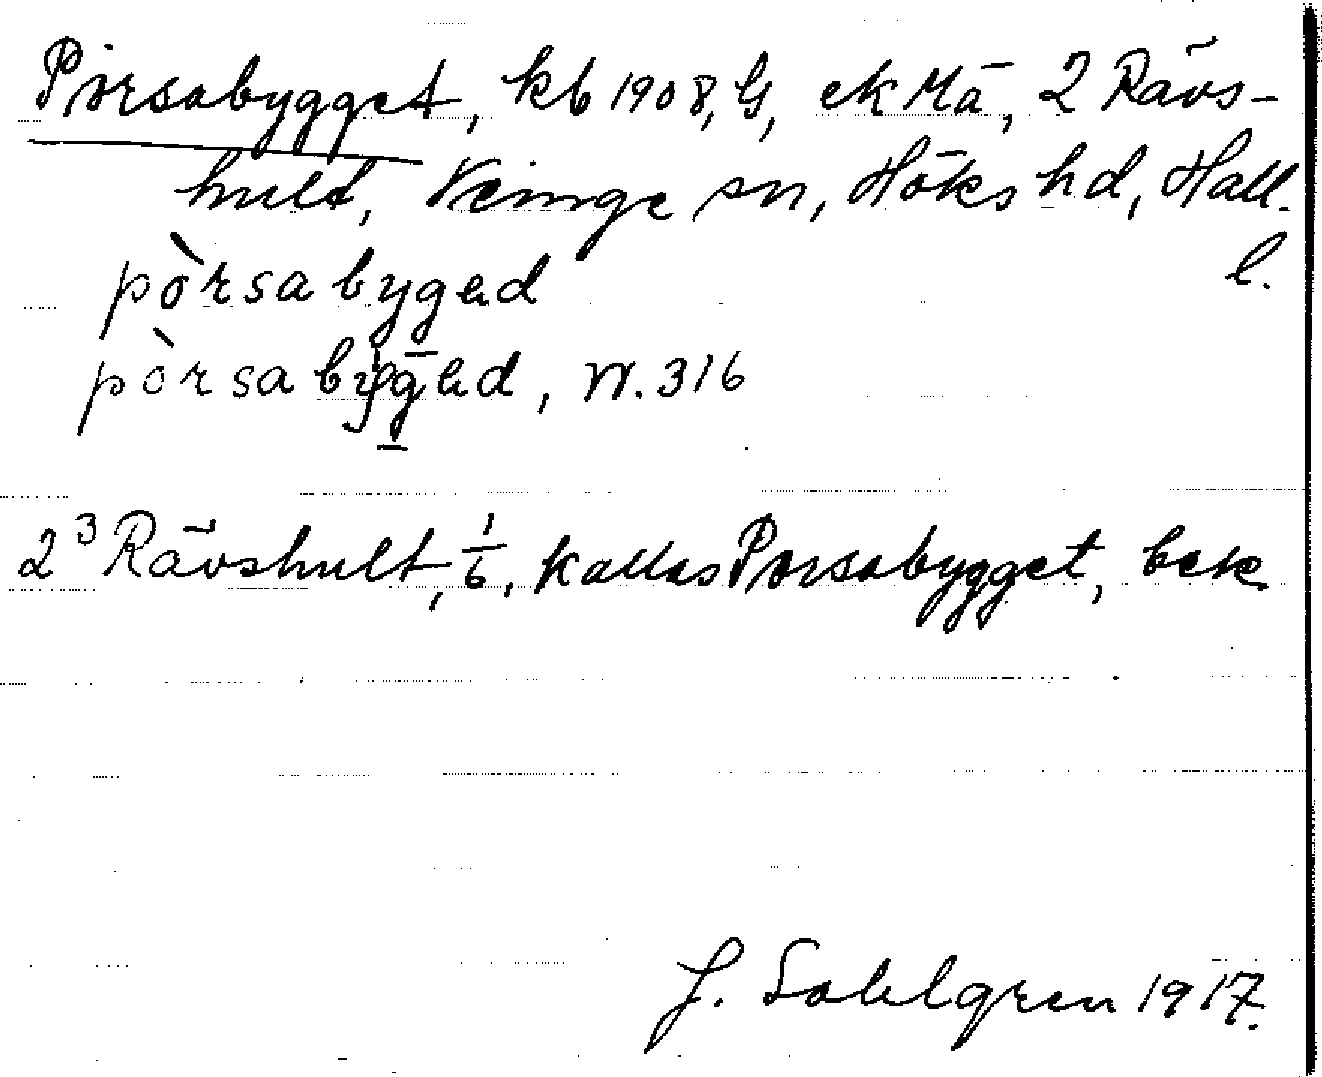 Porsabygget, kb 1908, G, ek Mä, 2 Rävs-
hult, Veinge sn, Höks hd, Hall.
l.
pòrsabygəd
pòrsabyg̅əd, N. 316
2³ Rävshult, 1/6, kallas Porsabygget, bek
J. Sahlgren 1917.